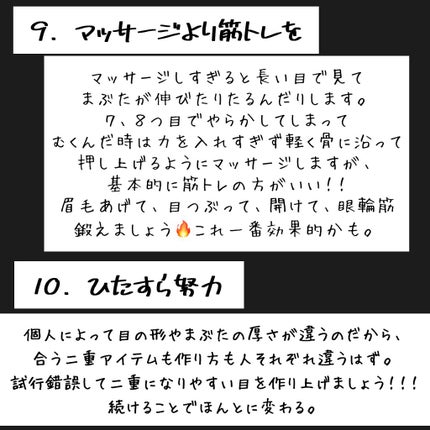 9. マッサージより筋トレを
マッサージしすぎると長い目で見て
まぶたが伸びたりたるんだりします。
7、8つ目でやらかしてしまって
むくんだ時は力を入れすぎず軽く骨に沿って
押し上げるようにマッサージしますが、
基本的に筋トレの方がいい!!
眉毛あげて、目つぶって、開けて、眼輪筋
鍛えましょう🔥これ一番効果的かも。
10. ひたすら努力
個人によって目の形やまぶたの厚さが違うのだから、
合う二重アイテムも作り方も人それぞれ違うはず。
試行錯誤して二重になりやすい目を作り上げましょう!!!
続けることでほんとに変わる。